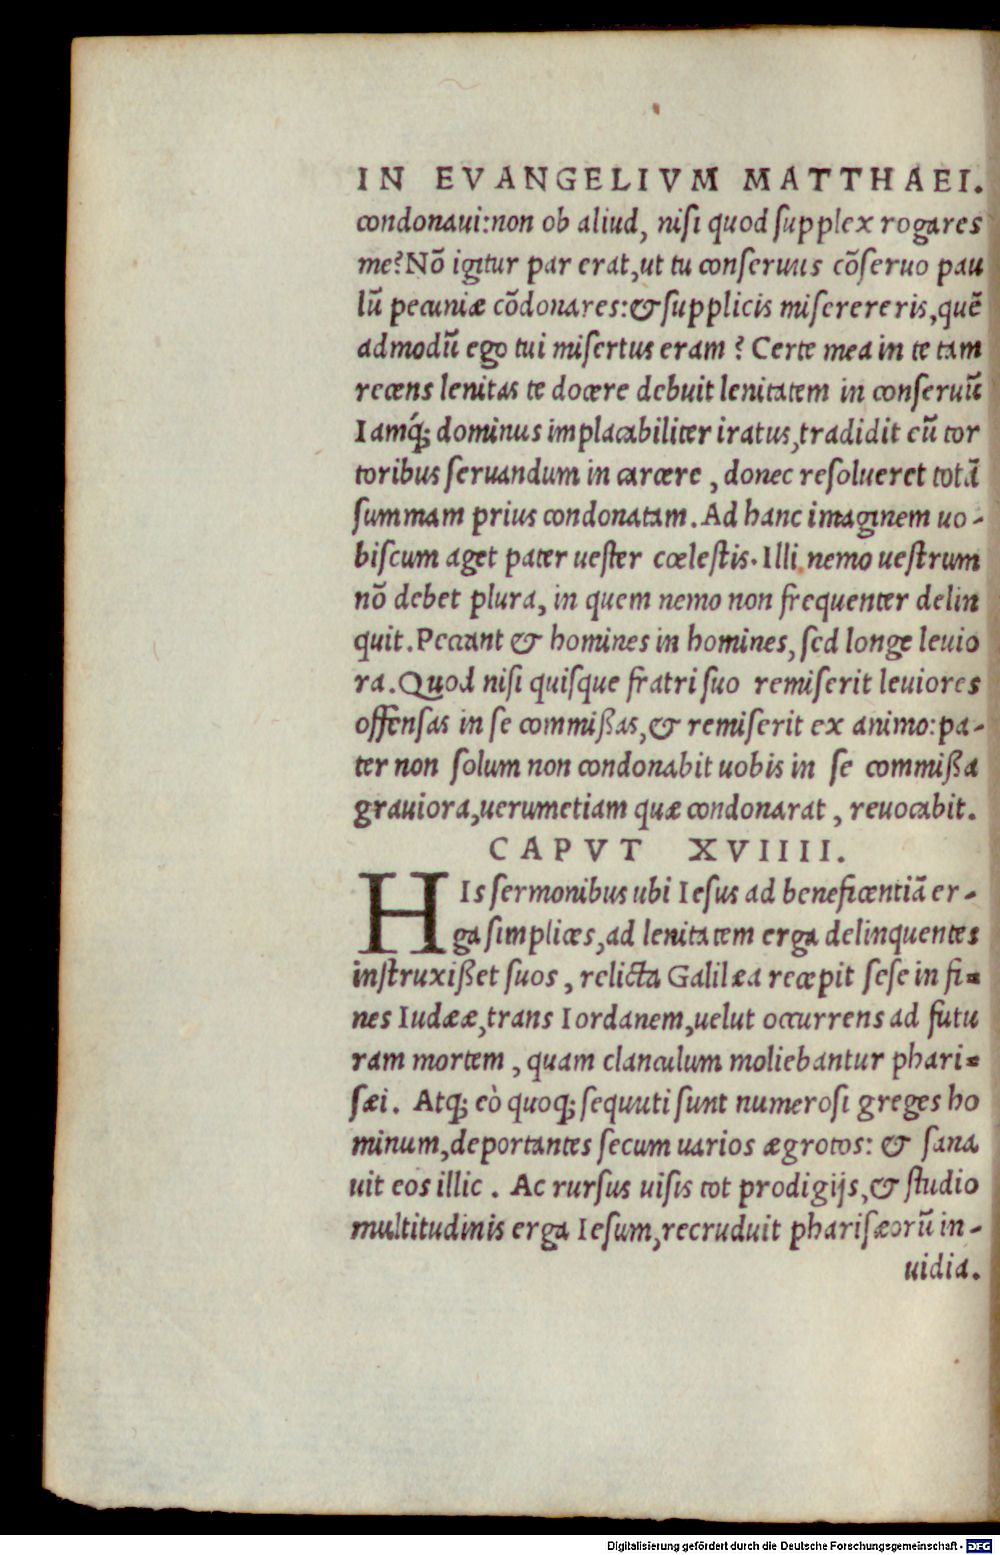 IN EVANGELIVM MATTHAEI.
condonaui:non ob aliud, nisi quod supplex rogares
me? Nō igitur par erat,ut tu conseruus cōseruo pau
lū pecuniæ cōdonares:& supplicis miserereris,quē
admodū ego tui misertus eram? Certe mea in te tam
recens lenitas te docere debuit lenitatem in conseruū
Iamq́; dominus implacabiliter iratus,tradidit eū tor
toribus seruandum in carcere, donec resolueret totā
summam prius condonatam. Ad hanc imaginem uo-
biscum aget pater uester cœlestis. Illi nemo uestrum
nō debet plura, in quem nemo non frequenter delin
quit. Peccant & homines in homines, sed longe leuio
ra. Quod nisi quisque fratri suo remiserit leuiores
offensas in se commißas,& remiserit ex animo:pa-
ter non solum non condonabit uobis in se commißa
grauiora,uerumetiam quæ condonarat, reuocabit.
CAPVT XVIIII.
HIs sermonibus ubi Iesus ad beneficentiā er-
ga simplices,ad lenitatem erga delinquentes
instruxißet suos, relicta Galilæa recepit sese in fi=
nes Iudææ,trans Iordanem,uelut occurrens ad futu
ram mortem, quam clanculum moliebantur phari=
sæi. Atq; eò quoq; sequuti sunt numerosi greges ho
minum,deportantes secum uarios ægrotos: & sana
uit eos illic. Ac rursus uisis tot prodigijs,& studio
multitudinis erga Iesum,recruduit pharisæorū in-
uidia.
Digitalisierung gefördert durch die Deutsche Forschungsgemeinschaft - DFG